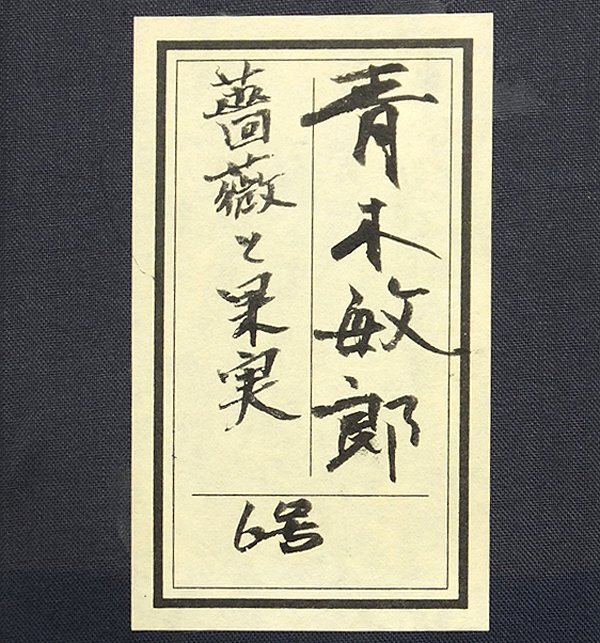 青木敏郎
薔薇と果実
6号